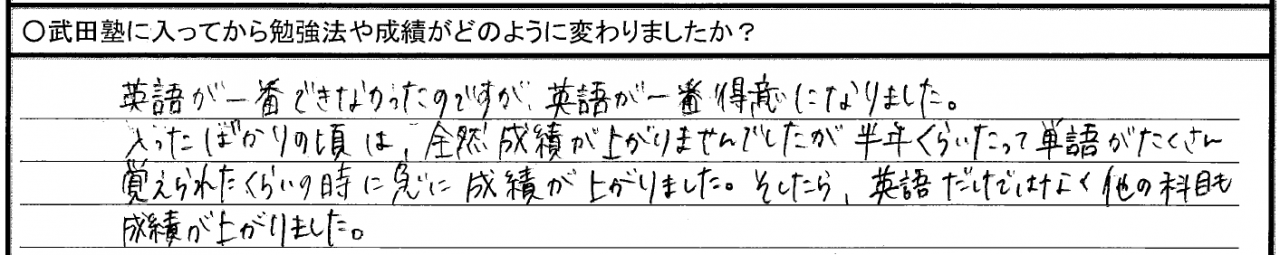 ○武田塾に入ってから勉強法や成績がどのように変わりましたか？
英語が一番できなかったのですが、英語が一番得意になりました。
入ったばかりの頃は、全然成績が上がりませんでしたが半年くらいたって単語がたくさん
覚えられたくらいの時に急に成績が上がりました。そしたら、英語だけではなく他の科目も
成績が上がりました。